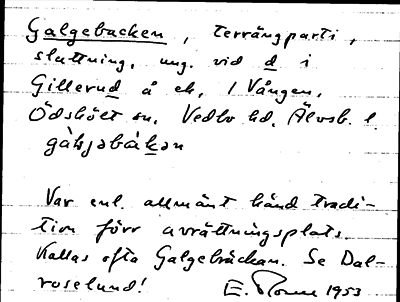 Galgebacken, terrängparti,
sluttning, ung. vid d i
Gillerud å ek. 1 Vången,
Ödskölt sn. Vedbo hd. Älvsb. l.
gàljəbàkən
Var enl. allmänt känd tradi-
tion förr avrättningsplats.
Kallas ofta Galgebräckan. Se Dal-
roselund!
E. 1953